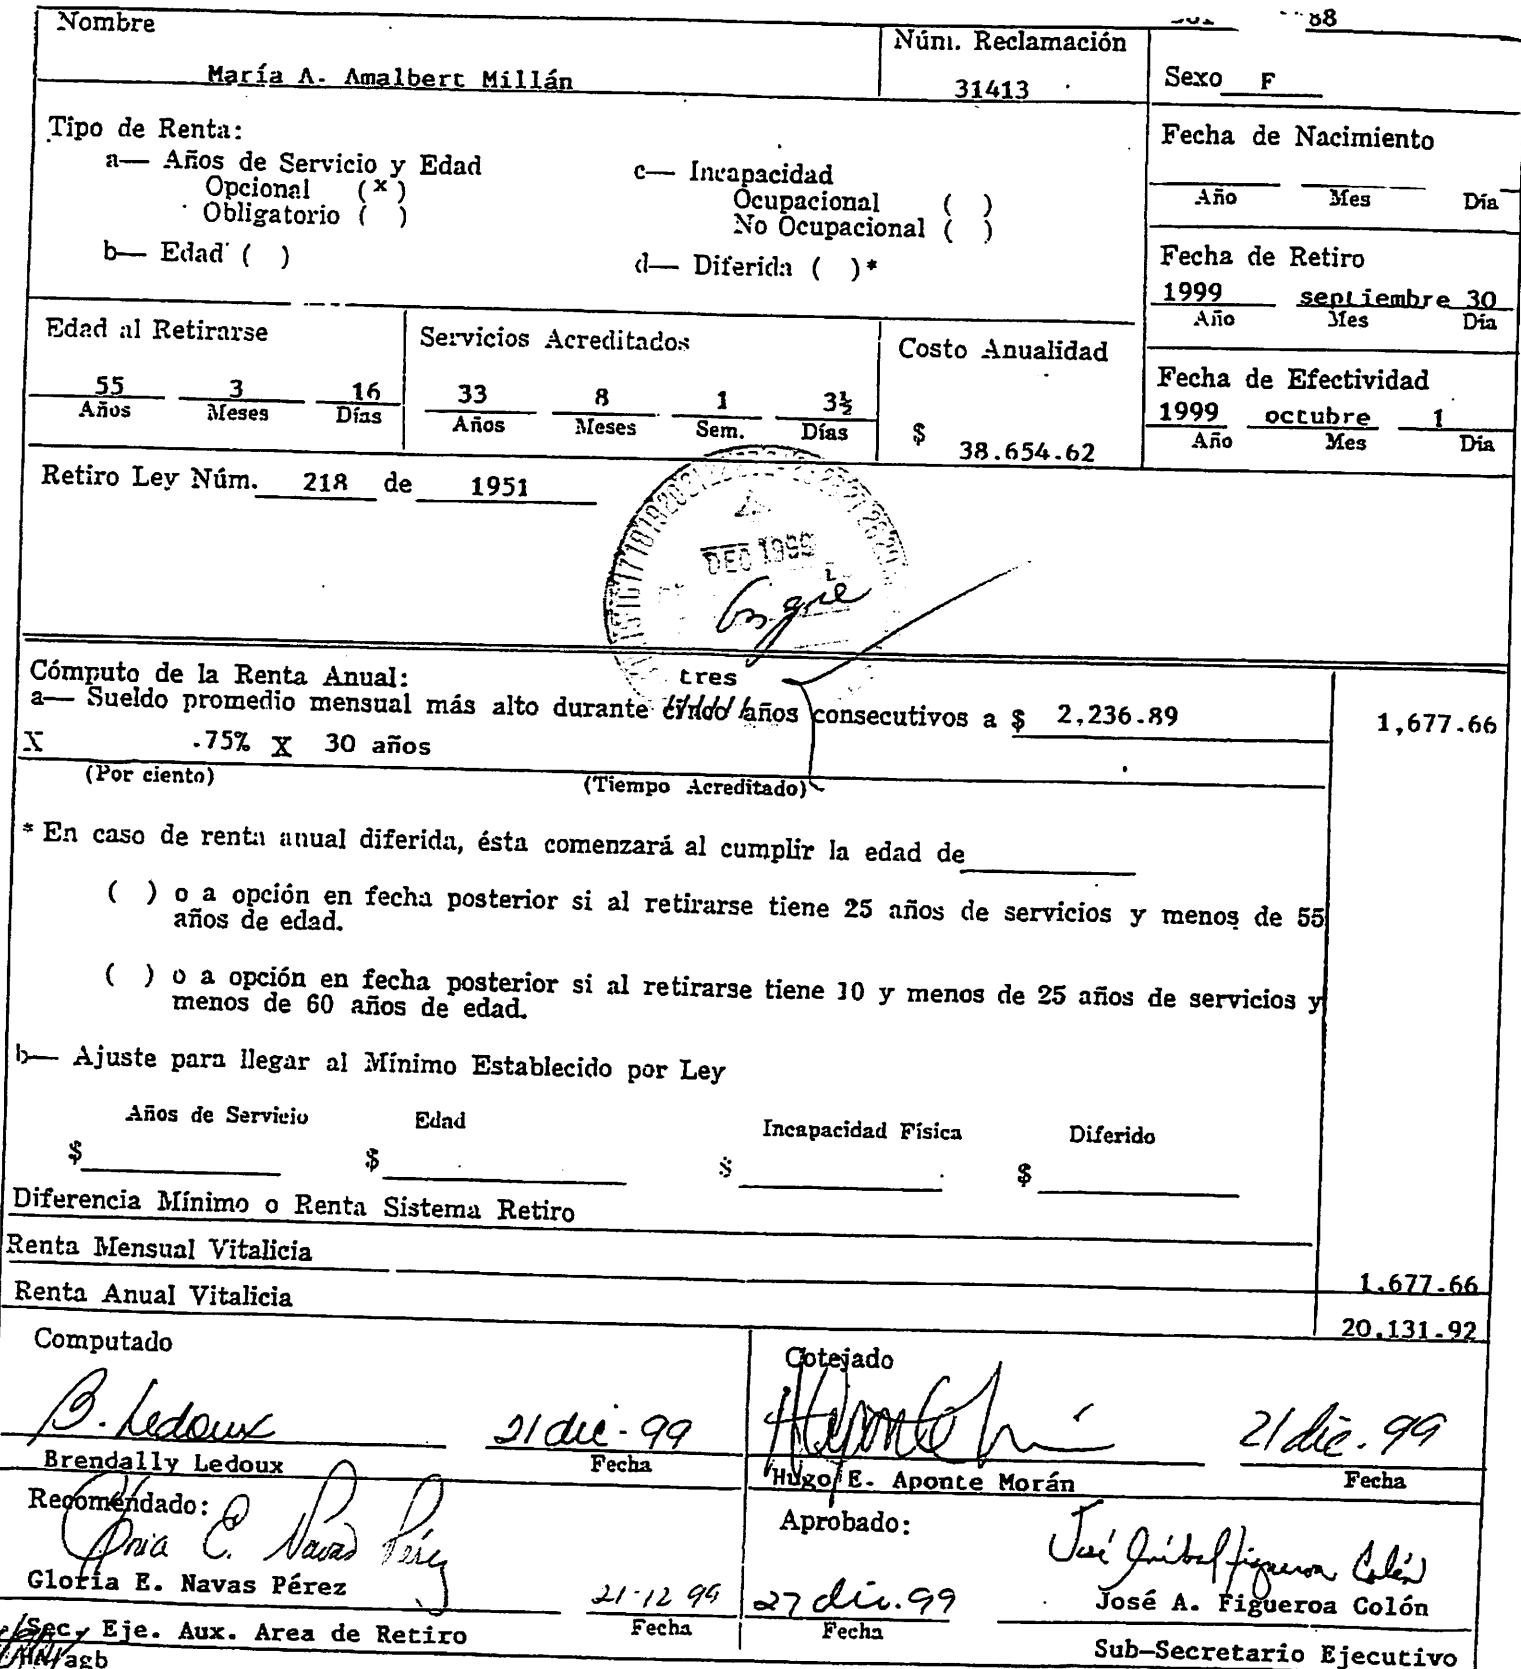 88
Nombre
María A. Amalbert Millán
Núm. Reclamación
31413
Sexo F
Tipo de Renta:
a— Años de Servicio y Edad
Opcional (x)
Obligatorio ( )
b— Edad ( )
c— Incapacidad
Ocupacional ( )
No Ocupacional ( )
d— Diferida ( )*
Fecha de Nacimiento
Año Mes Día
Fecha de Retiro
1999 septiembre 30
Año Mes Día
Edad al Retirarse
55 3 16
Años Meses Días
Servicios Acreditados
33 8 1 3½
Años Meses Sem. Días
Costo Anualidad
$ 38.654.62
Fecha de Efectividad
1999 octubre 1
Año Mes Día
Retiro Ley Núm. 218 de 1951
DEC 1999
Cómputo de la Renta Anual:
tres
a— Sueldo promedio mensual más alto durante cinco años consecutivos a $ 2,236.89 1,677.66
X .75% X 30 años
(Por ciento) (Tiempo Acreditado)
* En caso de renta anual diferida, ésta comenzará al cumplir la edad de
( ) o a opción en fecha posterior si al retirarse tiene 25 años de servicios y menos de 55
años de edad.
( ) o a opción en fecha posterior si al retirarse tiene 10 y menos de 25 años de servicios y
menos de 60 años de edad.
b— Ajuste para llegar al Mínimo Establecido por Ley
Años de Servicio Edad Incapacidad Física Diferido
$ $ $ $
Diferencia Mínimo o Renta Sistema Retiro
Renta Mensual Vitalicia 1.677.66
Renta Anual Vitalicia 20.131.92
Computado
B. Ledoux 21 dic-99
Brendally Ledoux Fecha
Cotejado
21 dic. 99
Hugo E. Aponte Morán Fecha
Recomendado:
Gloria E. Navas Pérez
Gloria E. Navas Pérez 21-12 99
Sec. Eje. Aux. Area de Retiro Fecha
agb
Aprobado:
José Anibal Figueroa Colón
27 dic.99 José A. Figueroa Colón
Fecha
Sub-Secretario Ejecutivo